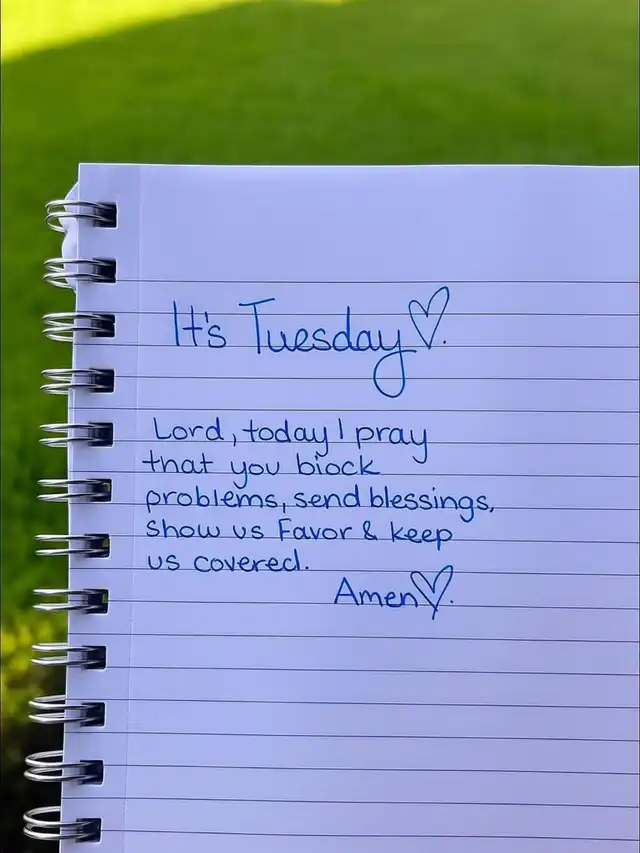 It's Tuesday♡.
Lord, today I pray
that you block
problems, send blessings,
show us Favor & keep
us covered.
Amen♡.